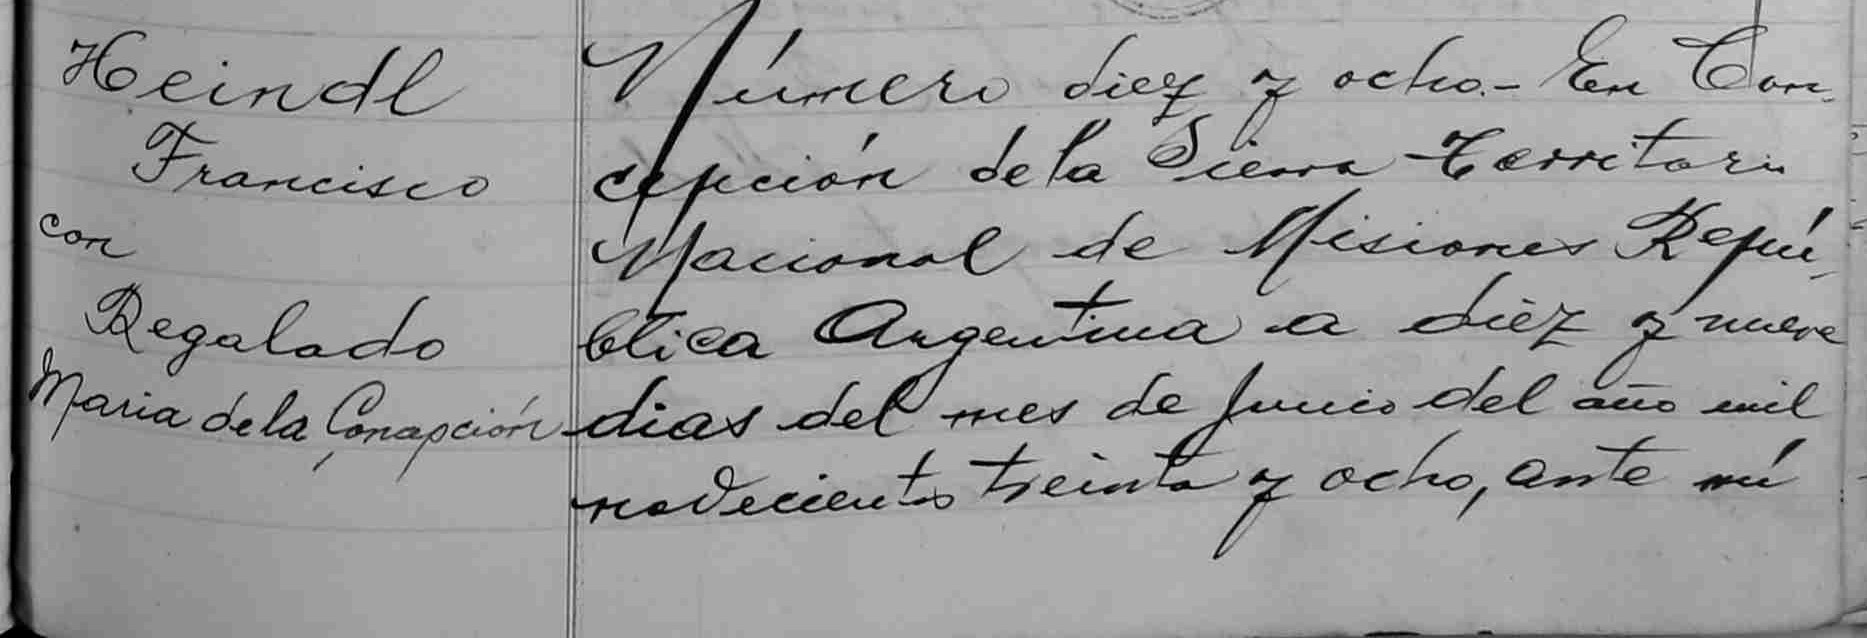 Heindl
Francisco
con
Regalado
Maria de la Concepción
Número diez y ocho.- En Con-
cepción de la Sierra Territorio
Nacional de Misiones Repú-
blica Argentina a diez y nueve
dias del mes de Junio del año mil
novecientos treinta y ocho, ante mi